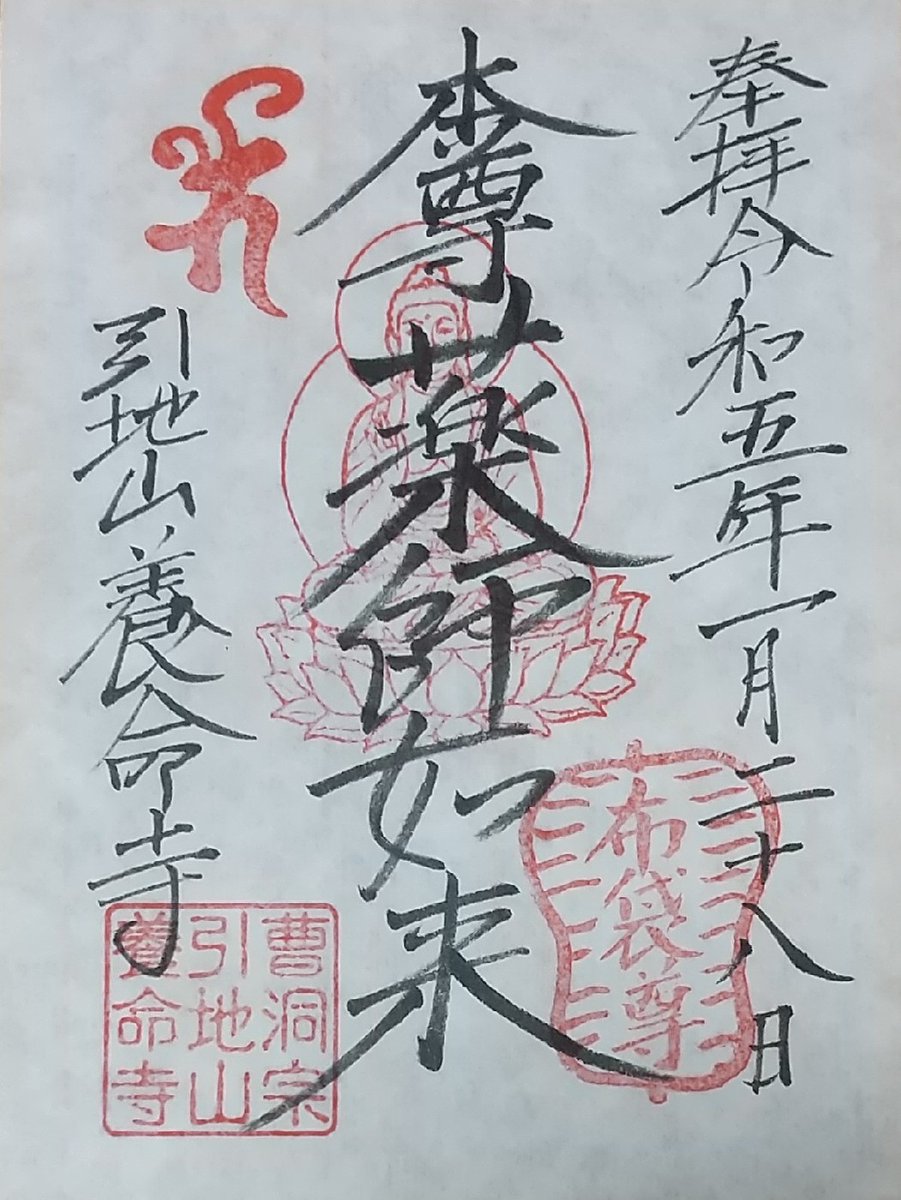 奉拝令和五年一月二十八日
布袋尊
本尊薬師如来
引地山養命寺
曹洞宗
引地山
養命寺